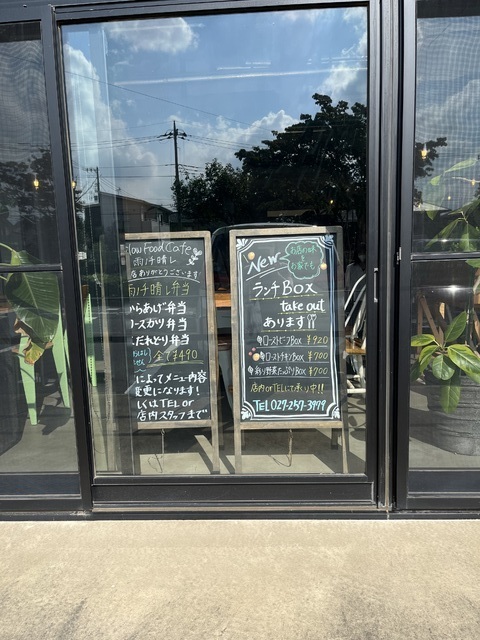 Slow Food Cafe
雨ノチ晴レ
ありがとうございます
雨ノチ晴レ弁当
からあげ弁当
ロースカツ弁当
だれどり弁当
全て¥490
によってメニュー内容
変更になります!
くはTEL or
店内スタッフまで
New
お店でも
お家でも
ランチBOX
take out
あります
ローストビーフBox ¥920
ローストチキンBox ¥700
彩り野菜たっぷりBox ¥700
店内 or TELにて
TEL 027-257-3979